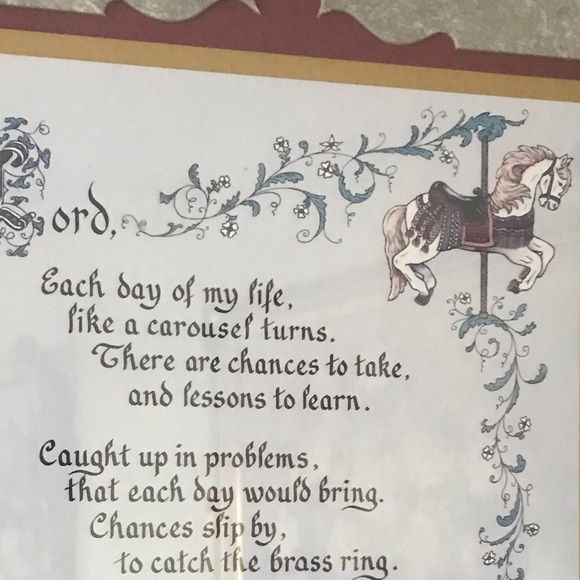 Lord,
Each day of my life,
like a carousel turns.
There are chances to take,
and lessons to learn.
Caught up in problems,
that each day would bring.
Chances slip by,
to catch the brass ring.